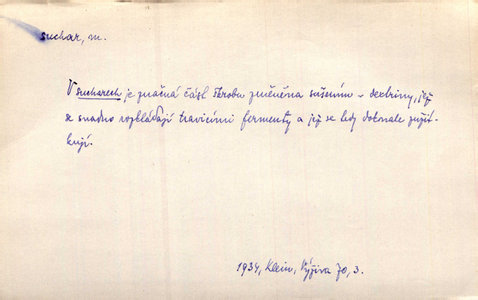 suchar, m.
V sucharech je značná část škrobu změněna sušením - dextriny, jež
se snadno rozkládají travicími fermenty a jež se tedy dokonale zužit-
kují.
1934, Klein, Výživa 70, 3.